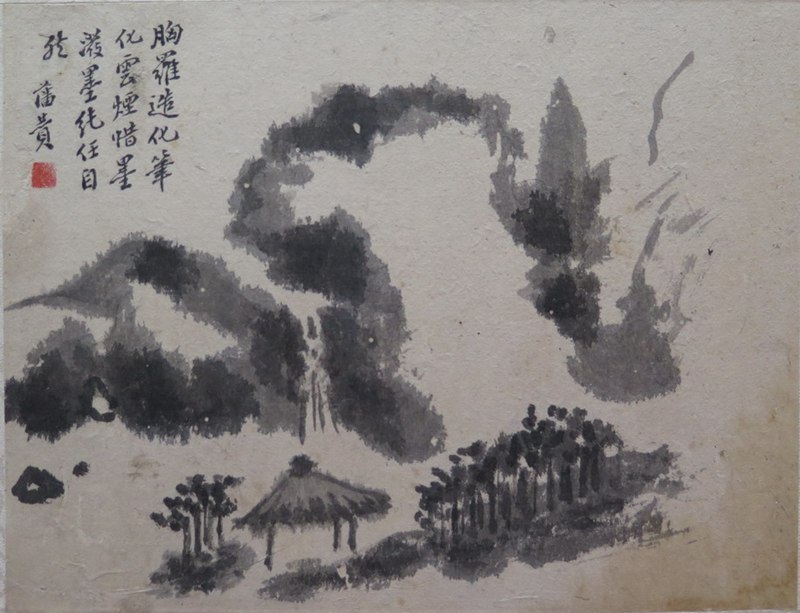 胸羅造化筆
化雲煙惜墨
潑墨純任自
然 藩貴